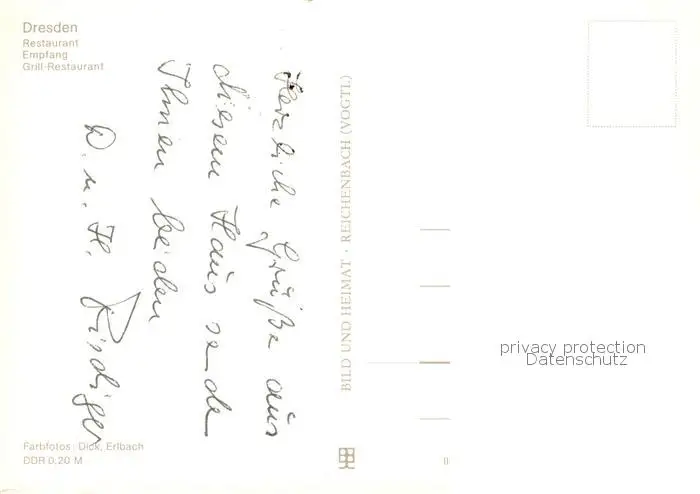 Dresden
Restaurant
Empfang
Grill-Restaurant
Herzliche Grüße aus
diesem Haus sende
Ihnen beiden
W. u. H.
BILD UND HEIMAT · REICHENBACH (VOGTL)
privacy protection
Datenschutz
Farbfotos: Dick, Erlbach
DDR 0,20 M